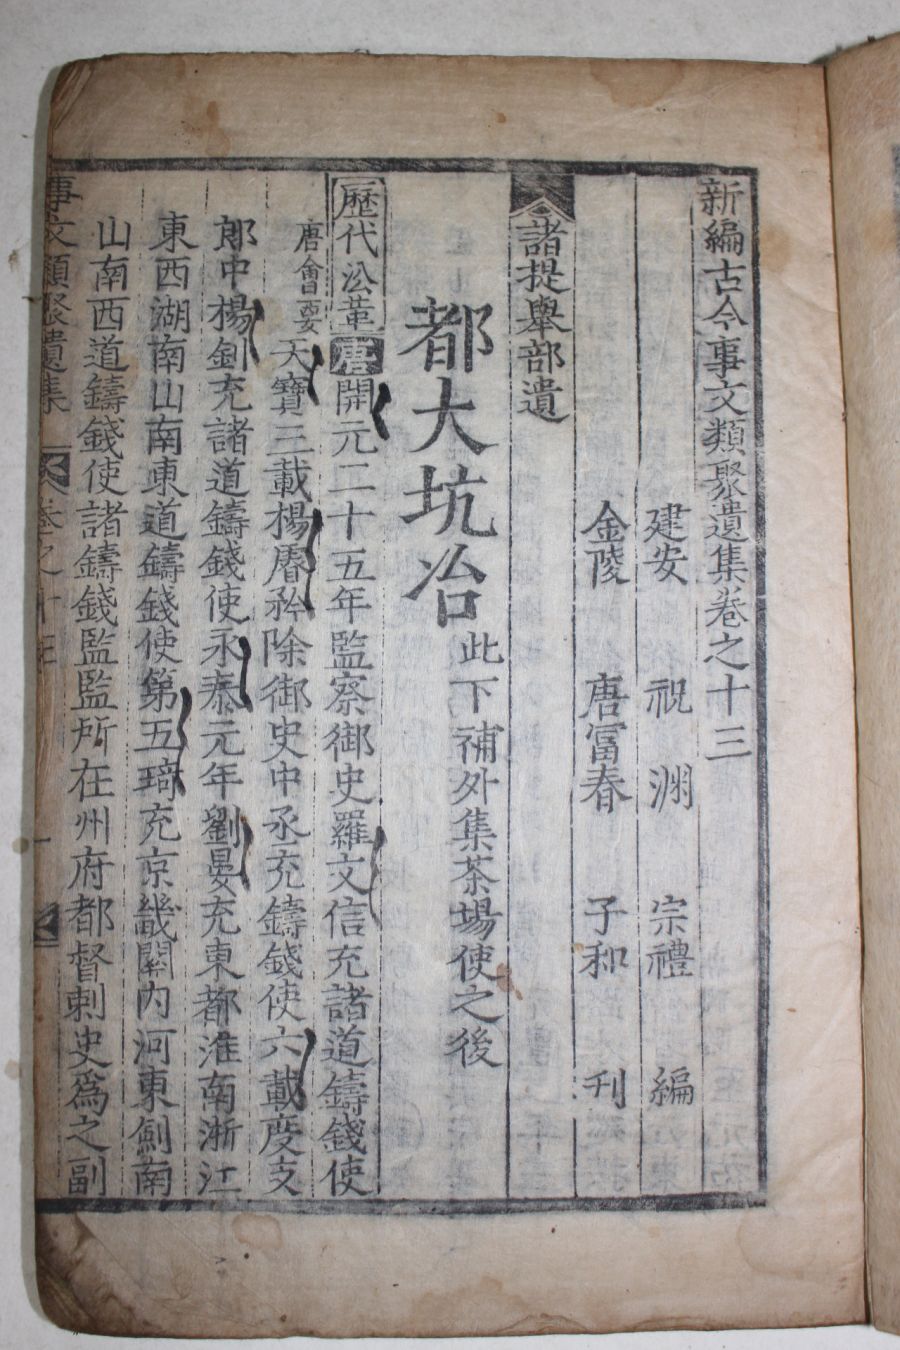 新編古今事文類聚遺集卷之十三
建安 祝 淵 宗禮 編
金陵 唐富春 子和 刋
諸提舉部遺
都大坑冶 此下補外集茶場使之後
歷代沿革 唐 開元二十五年監察御史羅文信充諸道鑄錢使
唐會要 天寶三載楊愼矜除御史中丞充鑄錢使六載度支
郎中楊釗充諸道鑄錢使永泰元年劉晏充東都淮南浙江
東西湖南山南東道鑄錢使第五琦充京畿關內河東劍南
山南西道鑄錢使諸鑄錢監監所在州府都督刺史爲之副
事文類聚遺集 卷之十三 一